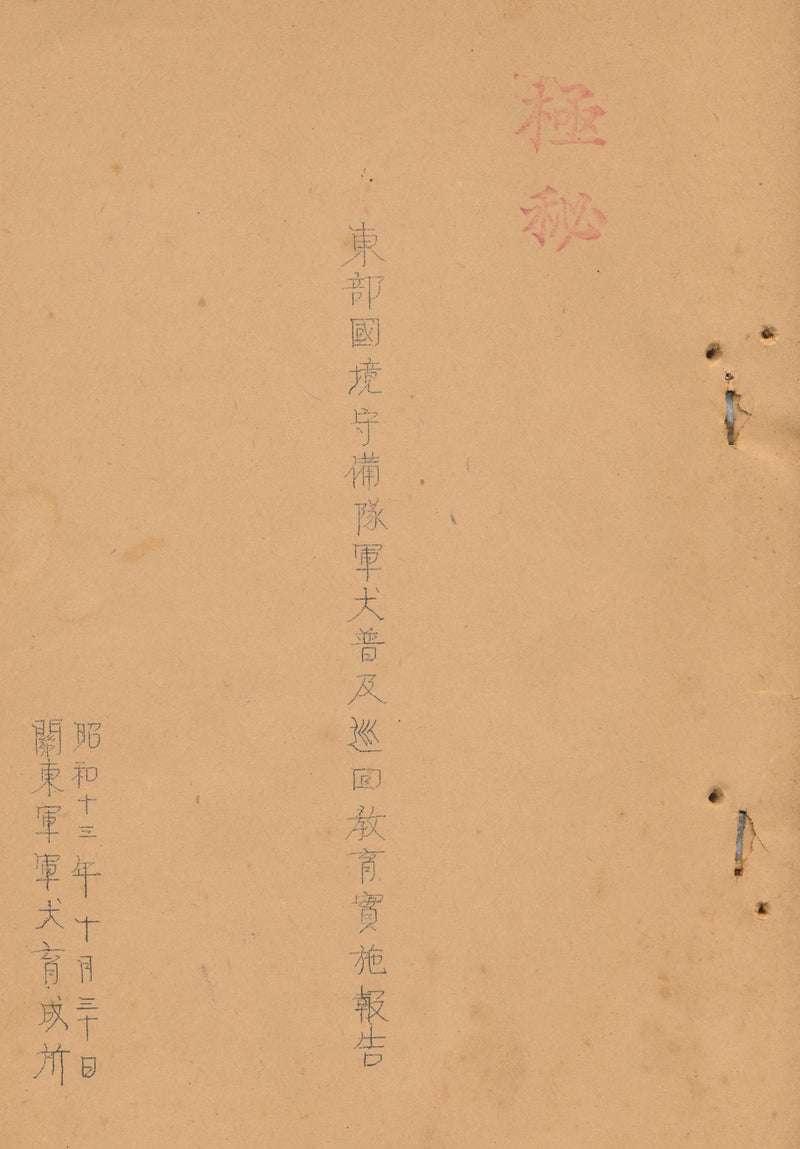 極秘
東部國境守備隊軍犬普及巡回教育實施報告
昭和十三年十月三十日
關東軍軍犬育成所